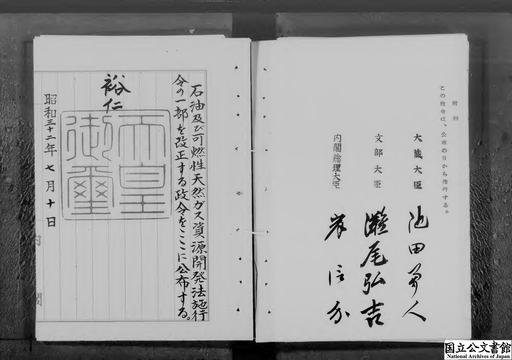 附則
この政令は、公布の日から施行する。
大蔵大臣 池田勇人
文部大臣 灘尾弘吉
内閣総理大臣 岸信介
石油及び可燃性天然ガス資源開発法施行
令の一部を改正する政令をここに公布する。
裕仁
天皇
御璽
昭和三十二年七月十日
内閣
国立公文書館
National Archives of Japan